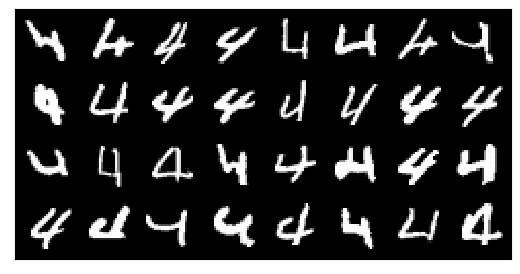 4 4 4 4 4 4 4 4
4 4 4 4 4 4 4 4
4 4 4 4 4 4 4 4
4 4 4 4 4 4 4 4